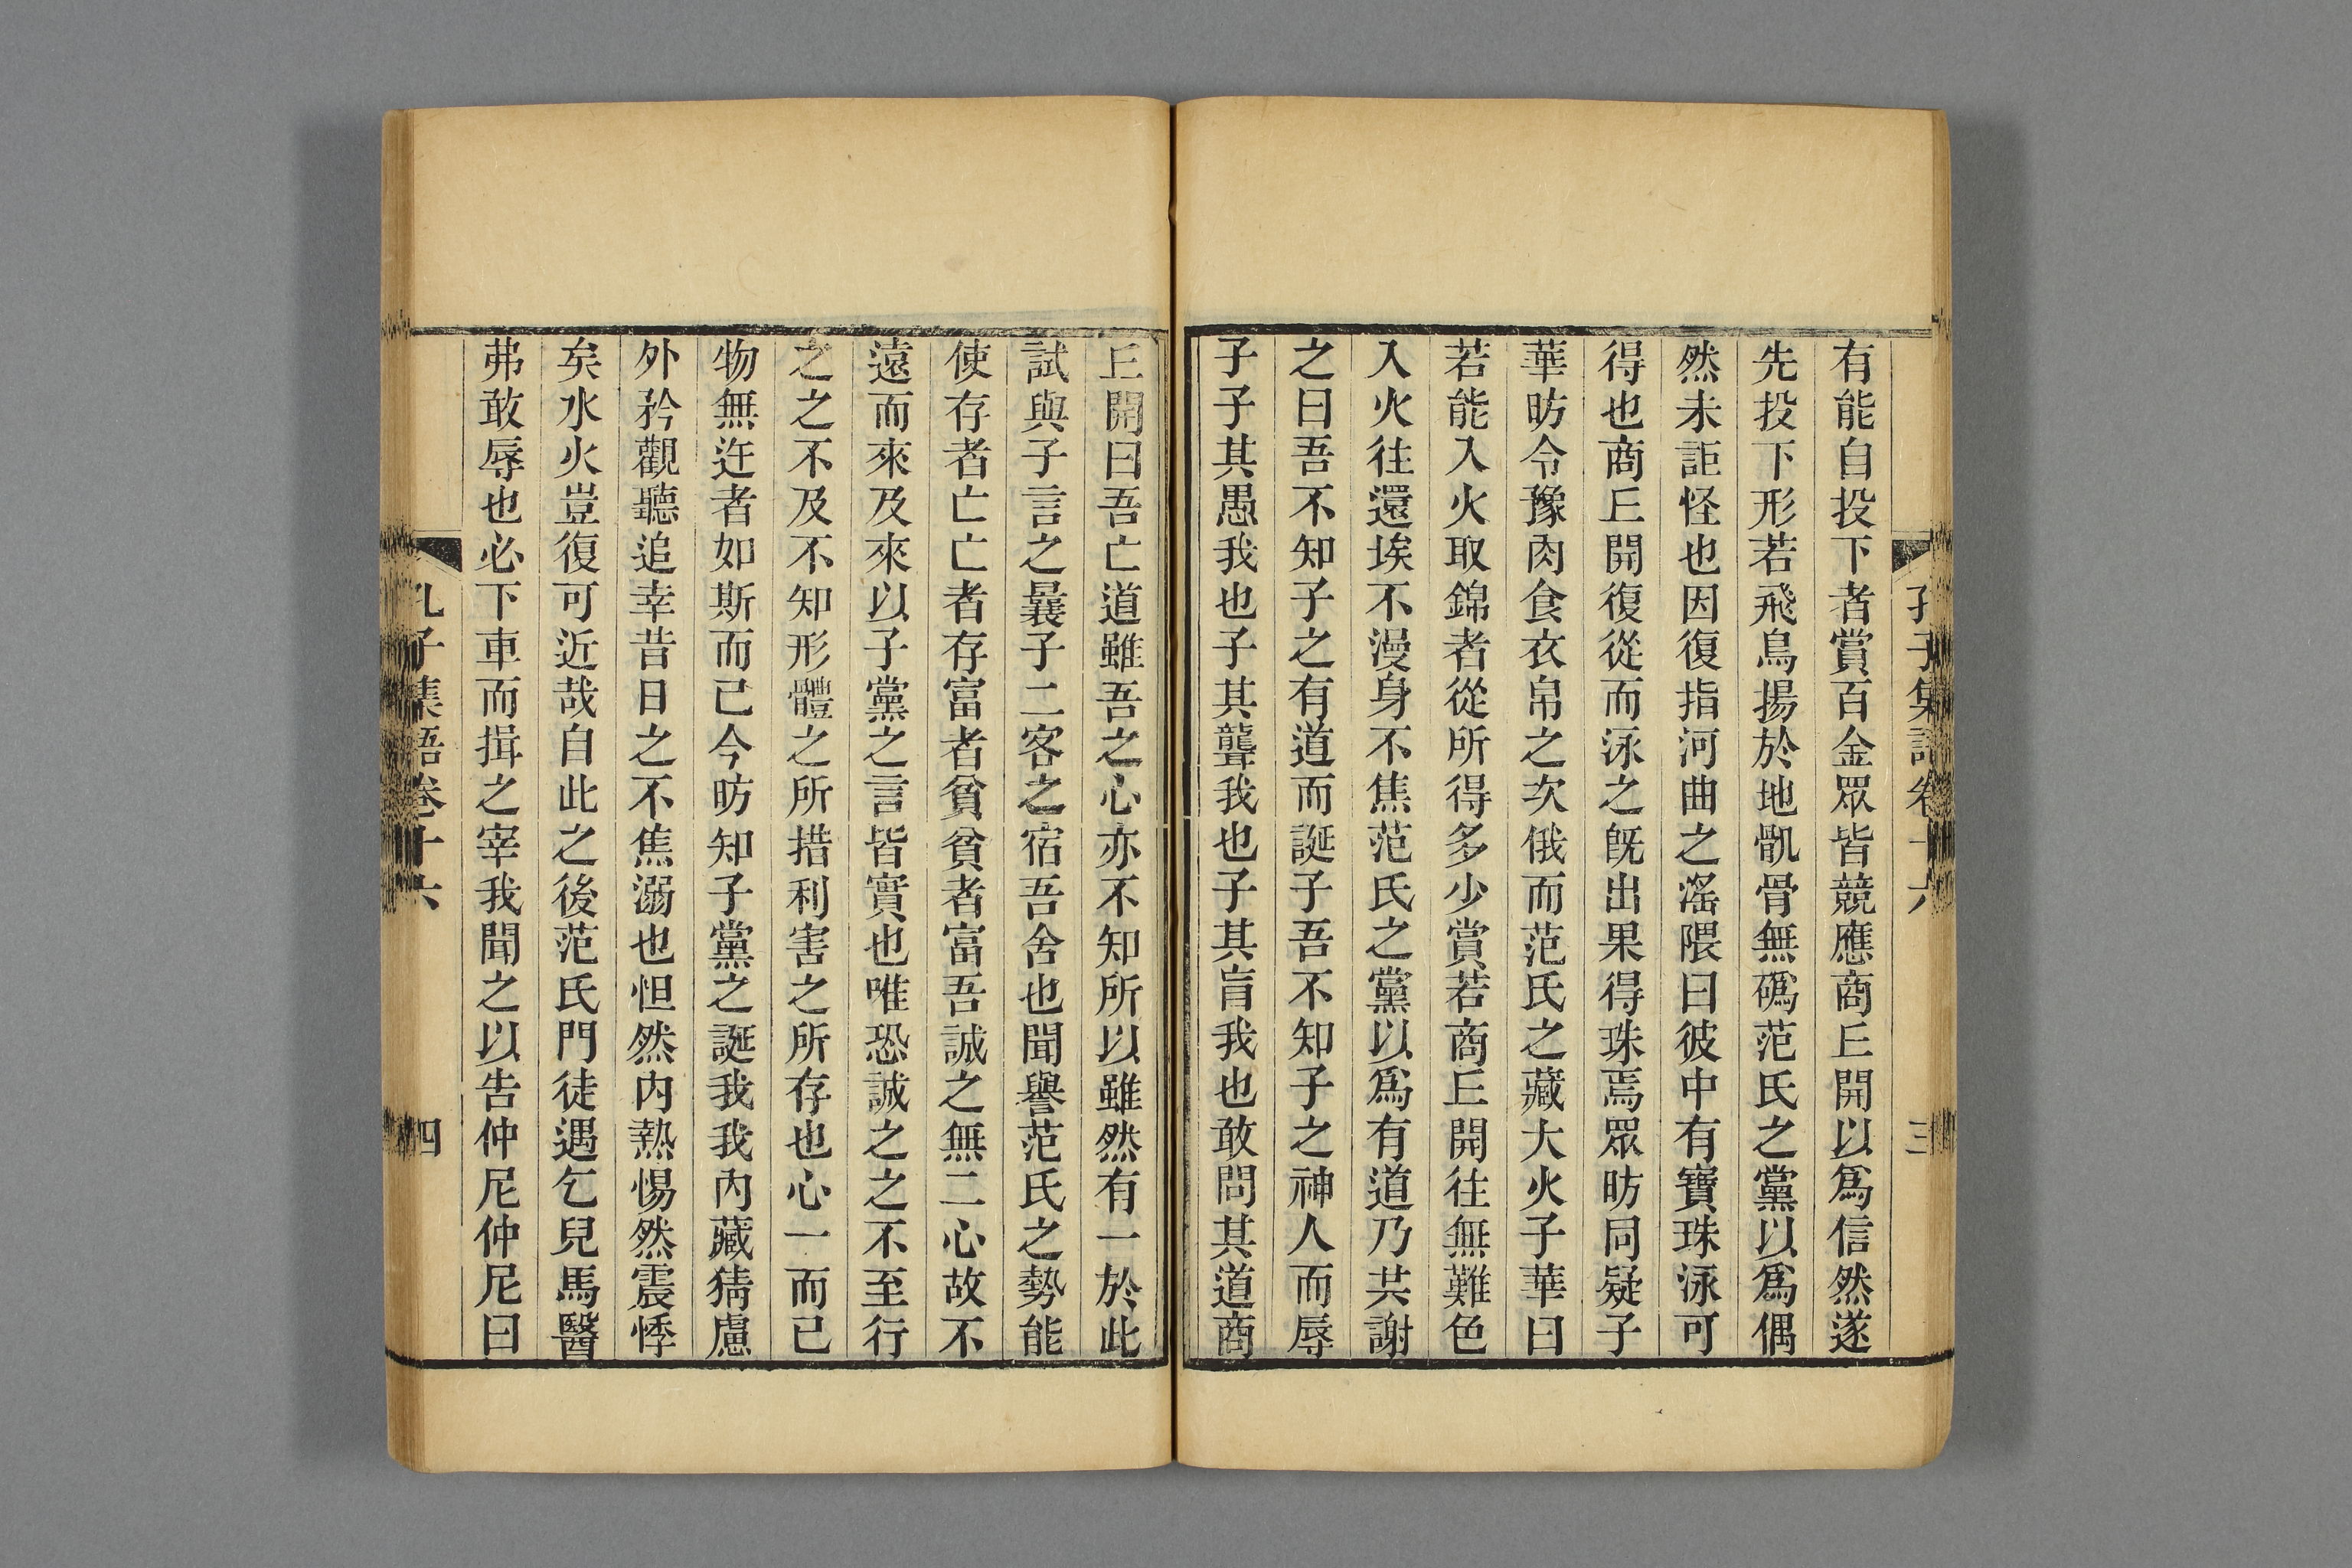 孔子集語卷十六
三
有能自投下者賞百金眾皆競應商丘開以爲信然遂
先投下形若飛鳥揚於地骩骨無䃣范氏之黨以爲偶
然未詎怪也因復指河曲之滛隈曰彼中有寶珠泳可
得也商丘開復從而泳之旣出果得珠焉眾昉同疑子
華昉令豫肉食衣帛之次俄而范氏之藏大火子華曰
若能入火取錦者從所得多少賞若商丘開往無難色
入火往還埃不漫身不焦范氏之黨以爲有道乃共謝
之曰吾不知子之有道而誕子吾不知子之神人而辱
子子其愚我也子其聾我也子其盲我也敢問其道商
丘開曰吾亡道雖吾之心亦不知所以雖然有一於此
試與子言之曩子二客之宿吾舍也聞譽范氏之勢能
使存者亡亡者存富者貧貧者富吾誠之無二心故不
遠而來及來以子黨之言皆實也唯恐誠之之不至行
之之不及不知形體之所措利害之所存也心一而已
物無迕者如斯而已今昉知子黨之誕我我內藏猜慮
外矜觀聽追幸昔日之不焦溺也怛然内熱惕然震悸
矣水火豈復可近哉自此之後范氏門徒遇乞兒馬醫
弗敢辱也必下車而揖之宰我聞之以告仲尼仲尼曰
孔子集語卷十六
四